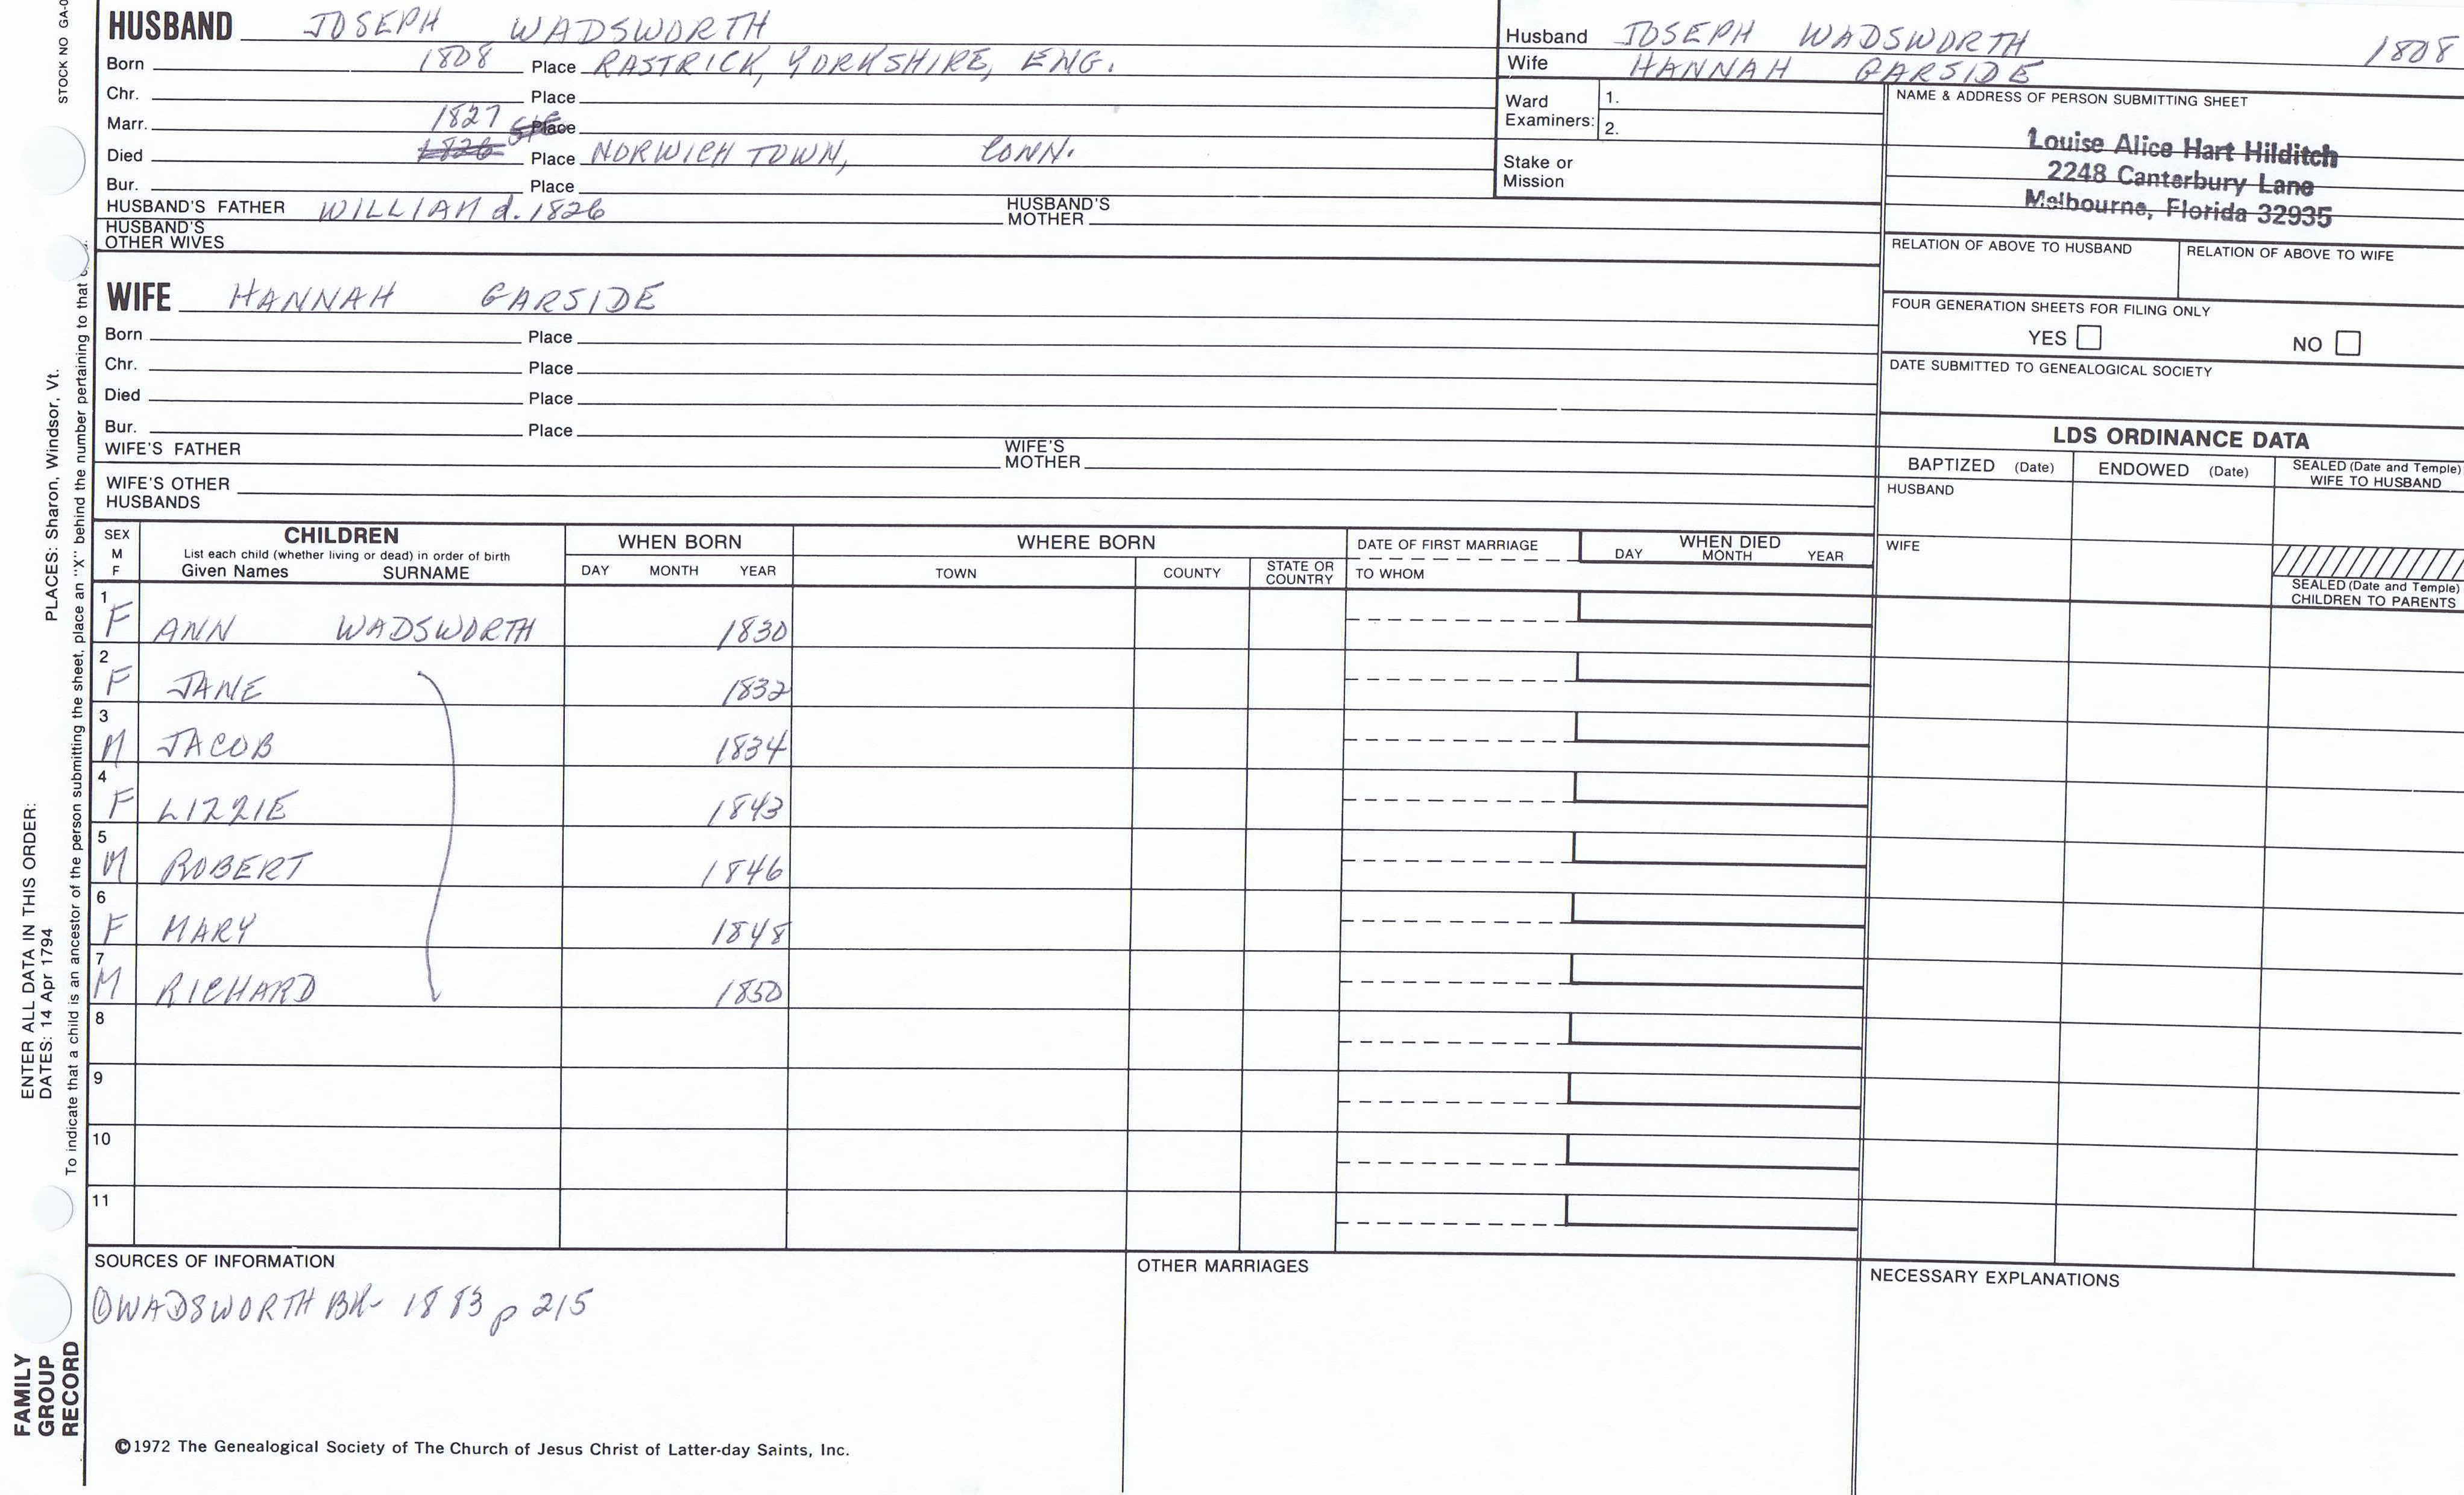 STOCK NO GA-0
HUSBAND JOSEPH WADSWORTH
Born 1808 Place RASTRICK, YORKSHIRE, ENG.
Chr. Place
Marr. 1827 Place
Died 1826 Place NORWICH TOWN, CONN.
Bur. Place
HUSBAND'S FATHER WILLIAM d. 1826 HUSBAND'S MOTHER
HUSBAND'S OTHER WIVES
WIFE HANNAH GARSIDE
Born Place
Chr. Place
Died Place
Bur. Place
WIFE'S FATHER WIFE'S MOTHER
WIFE'S OTHER HUSBANDS
Husband JOSEPH WADSWORTH 1808
Wife HANNAH GARSIDE
Ward Examiners: 1.
2.
Stake or Mission
NAME & ADDRESS OF PERSON SUBMITTING SHEET
Louise Alice Hart Hilditch
2248 Canterbury Lane
Melbourne, Florida 32935
RELATION OF ABOVE TO HUSBAND RELATION OF ABOVE TO WIFE
FOUR GENERATION SHEETS FOR FILING ONLY
YES NO
DATE SUBMITTED TO GENEALOGICAL SOCIETY
LDS ORDINANCE DATA
BAPTIZED (Date) ENDOWED (Date) SEALED (Date and Temple) WIFE TO HUSBAND
HUSBAND
WIFE
SEALED (Date and Temple) CHILDREN TO PARENTS
SEX M F CHILDREN WHEN BORN WHERE BORN DATE OF FIRST MARRIAGE WHEN DIED
List each child (whether living or dead) in order of birth
Given Names SURNAME DAY MONTH YEAR TOWN COUNTY STATE OR COUNTRY TO WHOM DAY MONTH YEAR
1 F ANN WADSWORTH 1830
2 F JANE 1832
3 M JACOB 1834
4 F LIZZIE 1843
5 M ROBERT 1846
6 F MARY 1848
7 M RICHARD 1850
8
9
10
11
SOURCES OF INFORMATION OTHER MARRIAGES NECESSARY EXPLANATIONS
① WADSWORTH BK- 1883 p 215
©1972 The Genealogical Society of The Church of Jesus Christ of Latter-day Saints, Inc.
FAMILY GROUP RECORD
ENTER ALL DATA IN THIS ORDER:
DATES: 14 Apr 1794
PLACES: Sharon, Windsor, Vt.
To indicate that a child is an ancestor of the person submitting the sheet, place an "X" behind the number pertaining to that